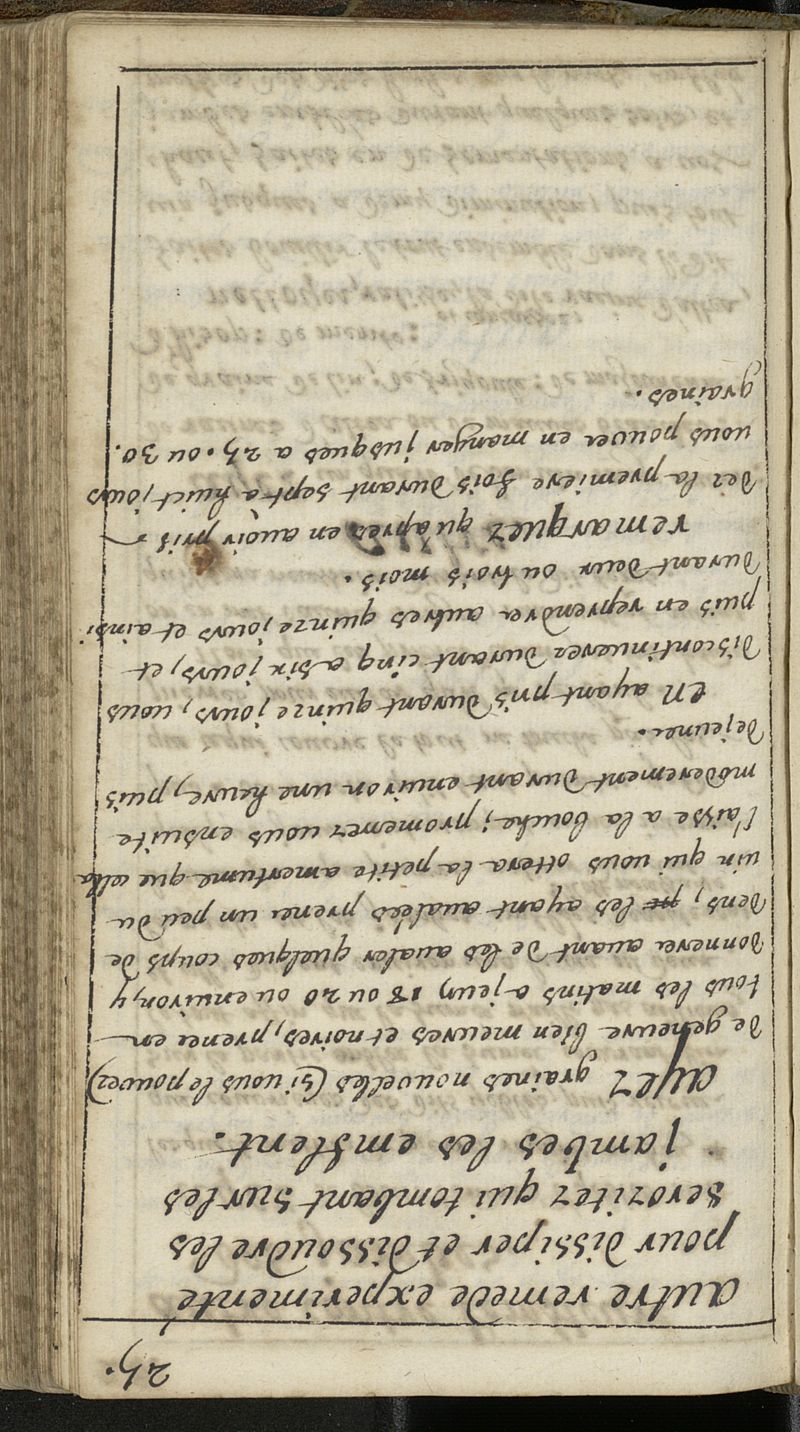 25.
autre remede experimenté
pour dissiper et dissoudre les
serozitez qui tombant sur les
jambes les emflent.
ayez graines nouvelles (si vous le pouvez)
de geneuve bien meuves et noires, prenez en
tous les matins a jeun 18 ou 20 ou environ, y
donnerez avant de les avaler quelques coups de
dens, les ayant avalées prenez un peu du
vin qui vous ottera la petite amertume que cella
laisse a la bouche; promenez vous ensuite
moderement durant environ une heure, puis
dejeunez.
en ayant pris durant quinze jours, vous
discontinuerez durant cinq a six jours, et
puis en reprendrez autres quinze jours et ainsi
durant deux ou trois mois.
remarquez qu'apres en avoir pris
dez la premiere fois durant sept a huict jours
vous pouvez en manger jusques a 25. ou 30.
graines.